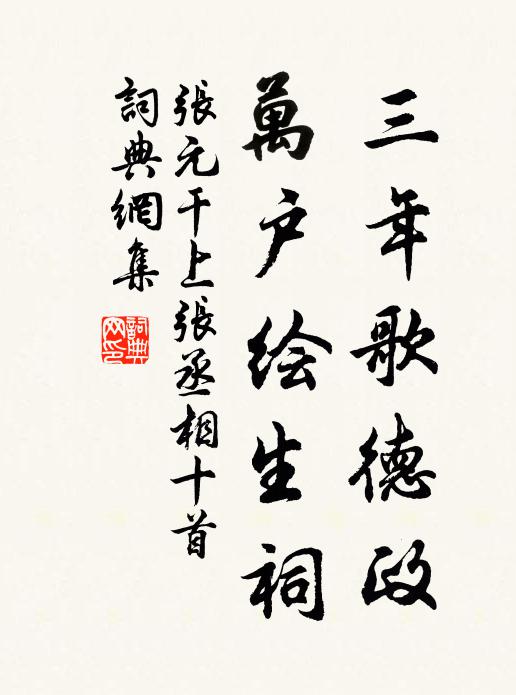 三年歌德政
萬户绘生祠
張元干上張丞相十首
詞典網集
詞典网印